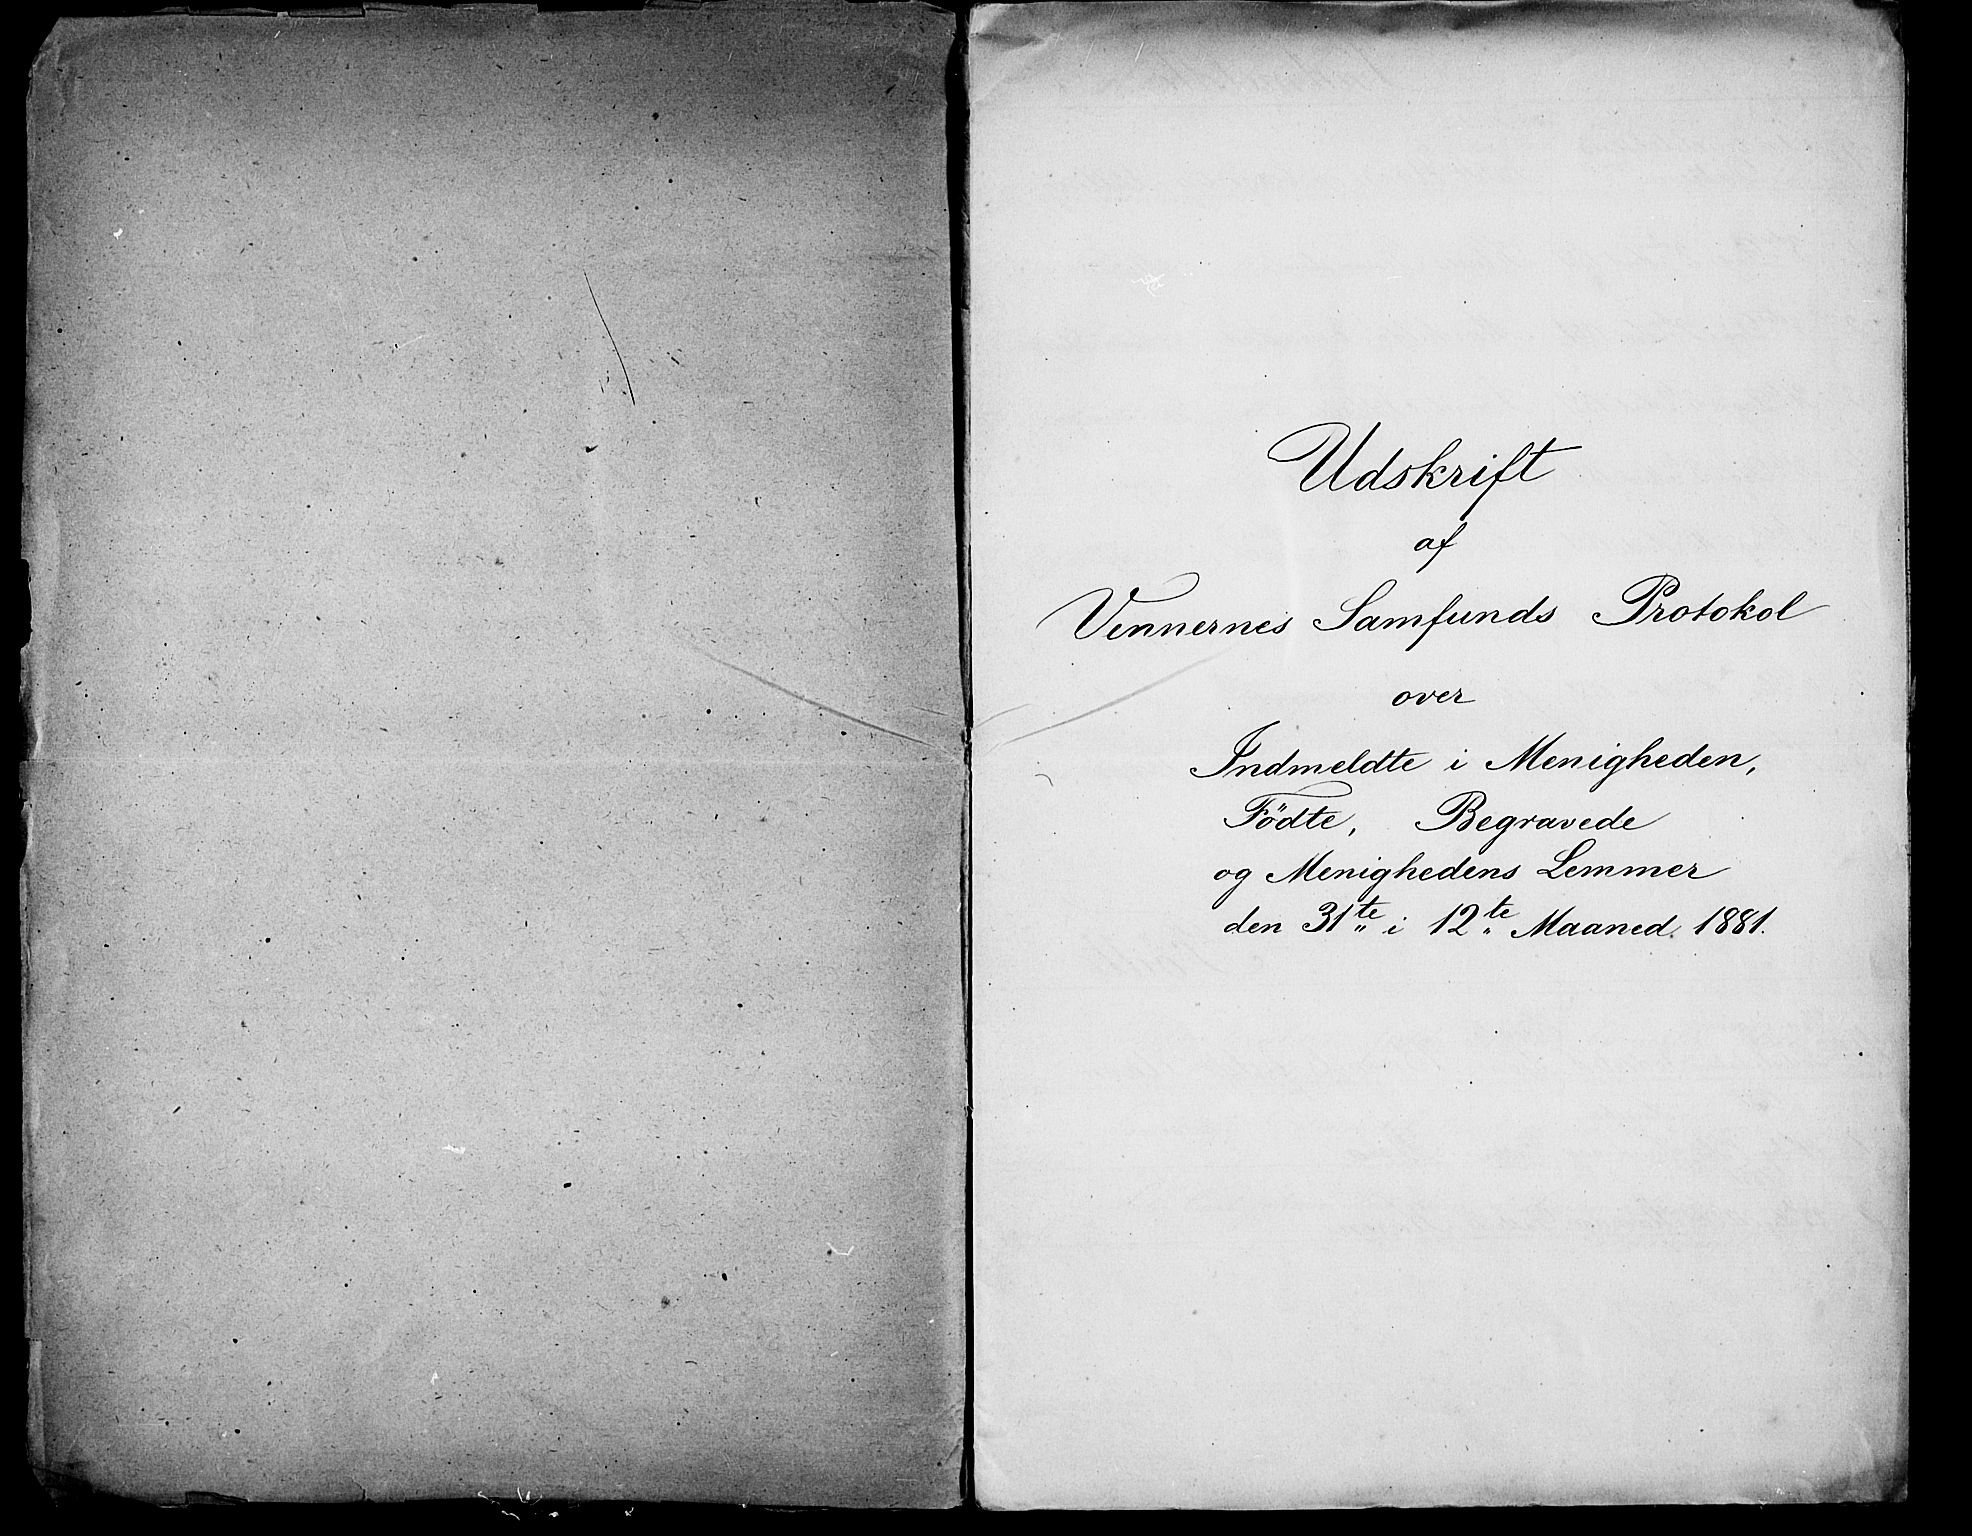 Udskrift
af
Vennernes Samfunds Protokol
over
Indmeldte i Menigheden,
Födte, Begravede
og Menighedens Lemmer
den 31te i 12te Maaned 1881.